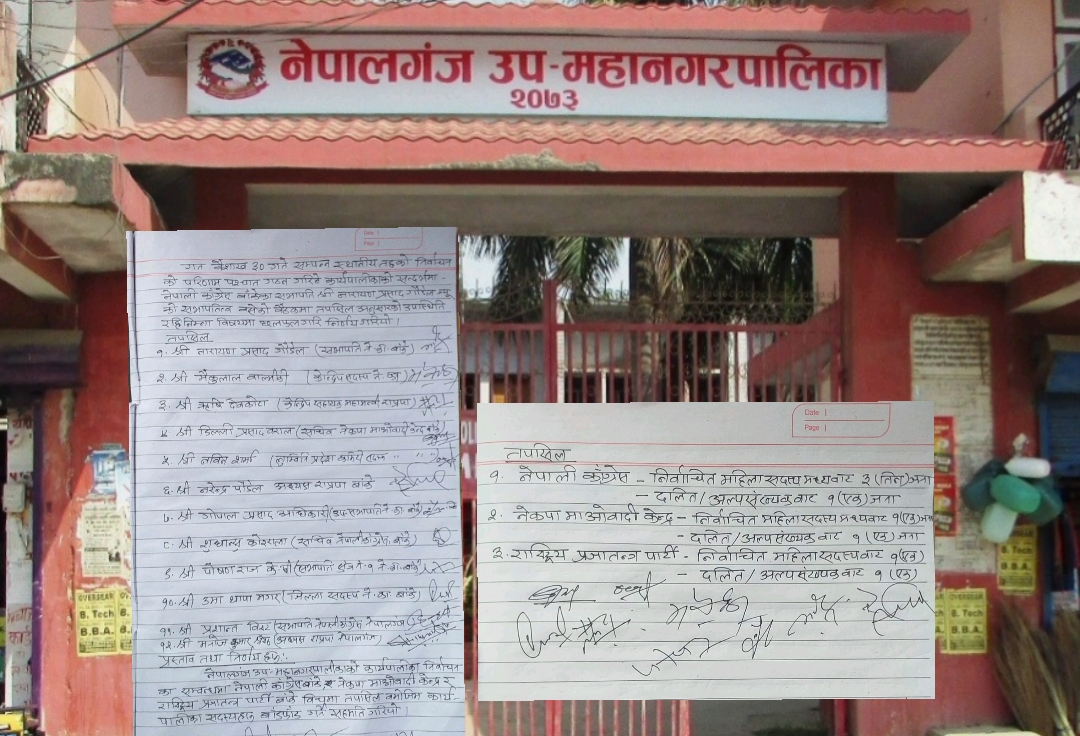 नेपालगंज उप-महानगरपालिका
२०७३
Date |
Page |
गत बैशाख ३० गते सम्पन्न स्थानीय तहको निर्वाचन
को परिणाम पश्चात गठन गरिने कार्यपालीकाको सन्दर्भमा
नेपाली काँग्रेस बाँकेका सभापति श्री नारायण प्रसाद गौडेल ज्यू
को सभापतित्व बसेको बैठकमा तपसिल अनुसारको उपस्थिति
रहि निम्न विषयमा छलफल गरि निर्णय गरियो ।
तपसिल
१. श्री नारायण प्रसाद गौडेल (सभापति ने.का बाँके)
२. श्री मैकुलाल बाल्मीकी (केन्द्रिय सदस्य ने. का)
३. श्री ऋषि देवकोटा (केन्द्रिय सहायक महामन्त्री राप्रपा)
४. श्री डिल्ली प्रसाद (सचिव नेकपा माओवादी केन्द्र बाँके)
५. श्री शर्मा (लुम्बिनि प्रदेश कमिटी सदस्य " "
६. श्री नरेन्द्र पौडेल अध्यक्ष राप्रपा बाँके
७. श्री गोपाल प्रसाद अधिकारी (उपसभापति ने.का बाँके)
८. श्री कोइराला (सचिव नेपाली काँग्रेस, बाँके)
९. श्री पोषण राज के.सी (सभापति क्षेत्र नं. १ ने.का बाँके)
१०. श्री उमा थापा मगर (जिल्ला सदस्य ने. का बाँके)
११. श्री प्रशान्त (सभापति नेपाली काँग्रेस नेपालगंज)
१२. श्री मनोज कुमार (अध्यक्ष राप्रपा नेपालगंज)
प्रस्ताव तथा निर्णय हरु:
नेपालगंज उप-महानगरपालीकाको कार्यपालीका निर्वाचन
का सम्बन्धमा नेपाली काँग्रेस बाँके, नेकपा माओवादी केन्द्र र
राष्ट्रिय प्रजातन्त्र पार्टी बाँके बिचमा तपसिल बमोजिम कार्य-
पालीका सदस्यहरु बाँडफाँड गर्ने सहमति गरियो ।
Date |
Page |
तपसिल
१. नेपाली काँग्रेस - निर्वाचित महिला सदस्य मध्यबाट ३ (तिन) जना
- दलित/अल्पसंख्यकबाट १ (एक) जना
२. नेकपा माओवादी केन्द्र - निर्वाचित महिला सदस्य मध्यबाट १ (एक) जना
- दलित/अल्पसंख्यकबाट १ (एक) जना
३. राष्ट्रिय प्रजातन्त्र पार्टी - निर्वाचित महिला सदस्यबाट १ (एक)
- दलित/अल्पसंख्यकबाट १ (एक)
OVERSEAR
B. Tech
B.B.A.
B. Tech
B.B.A.